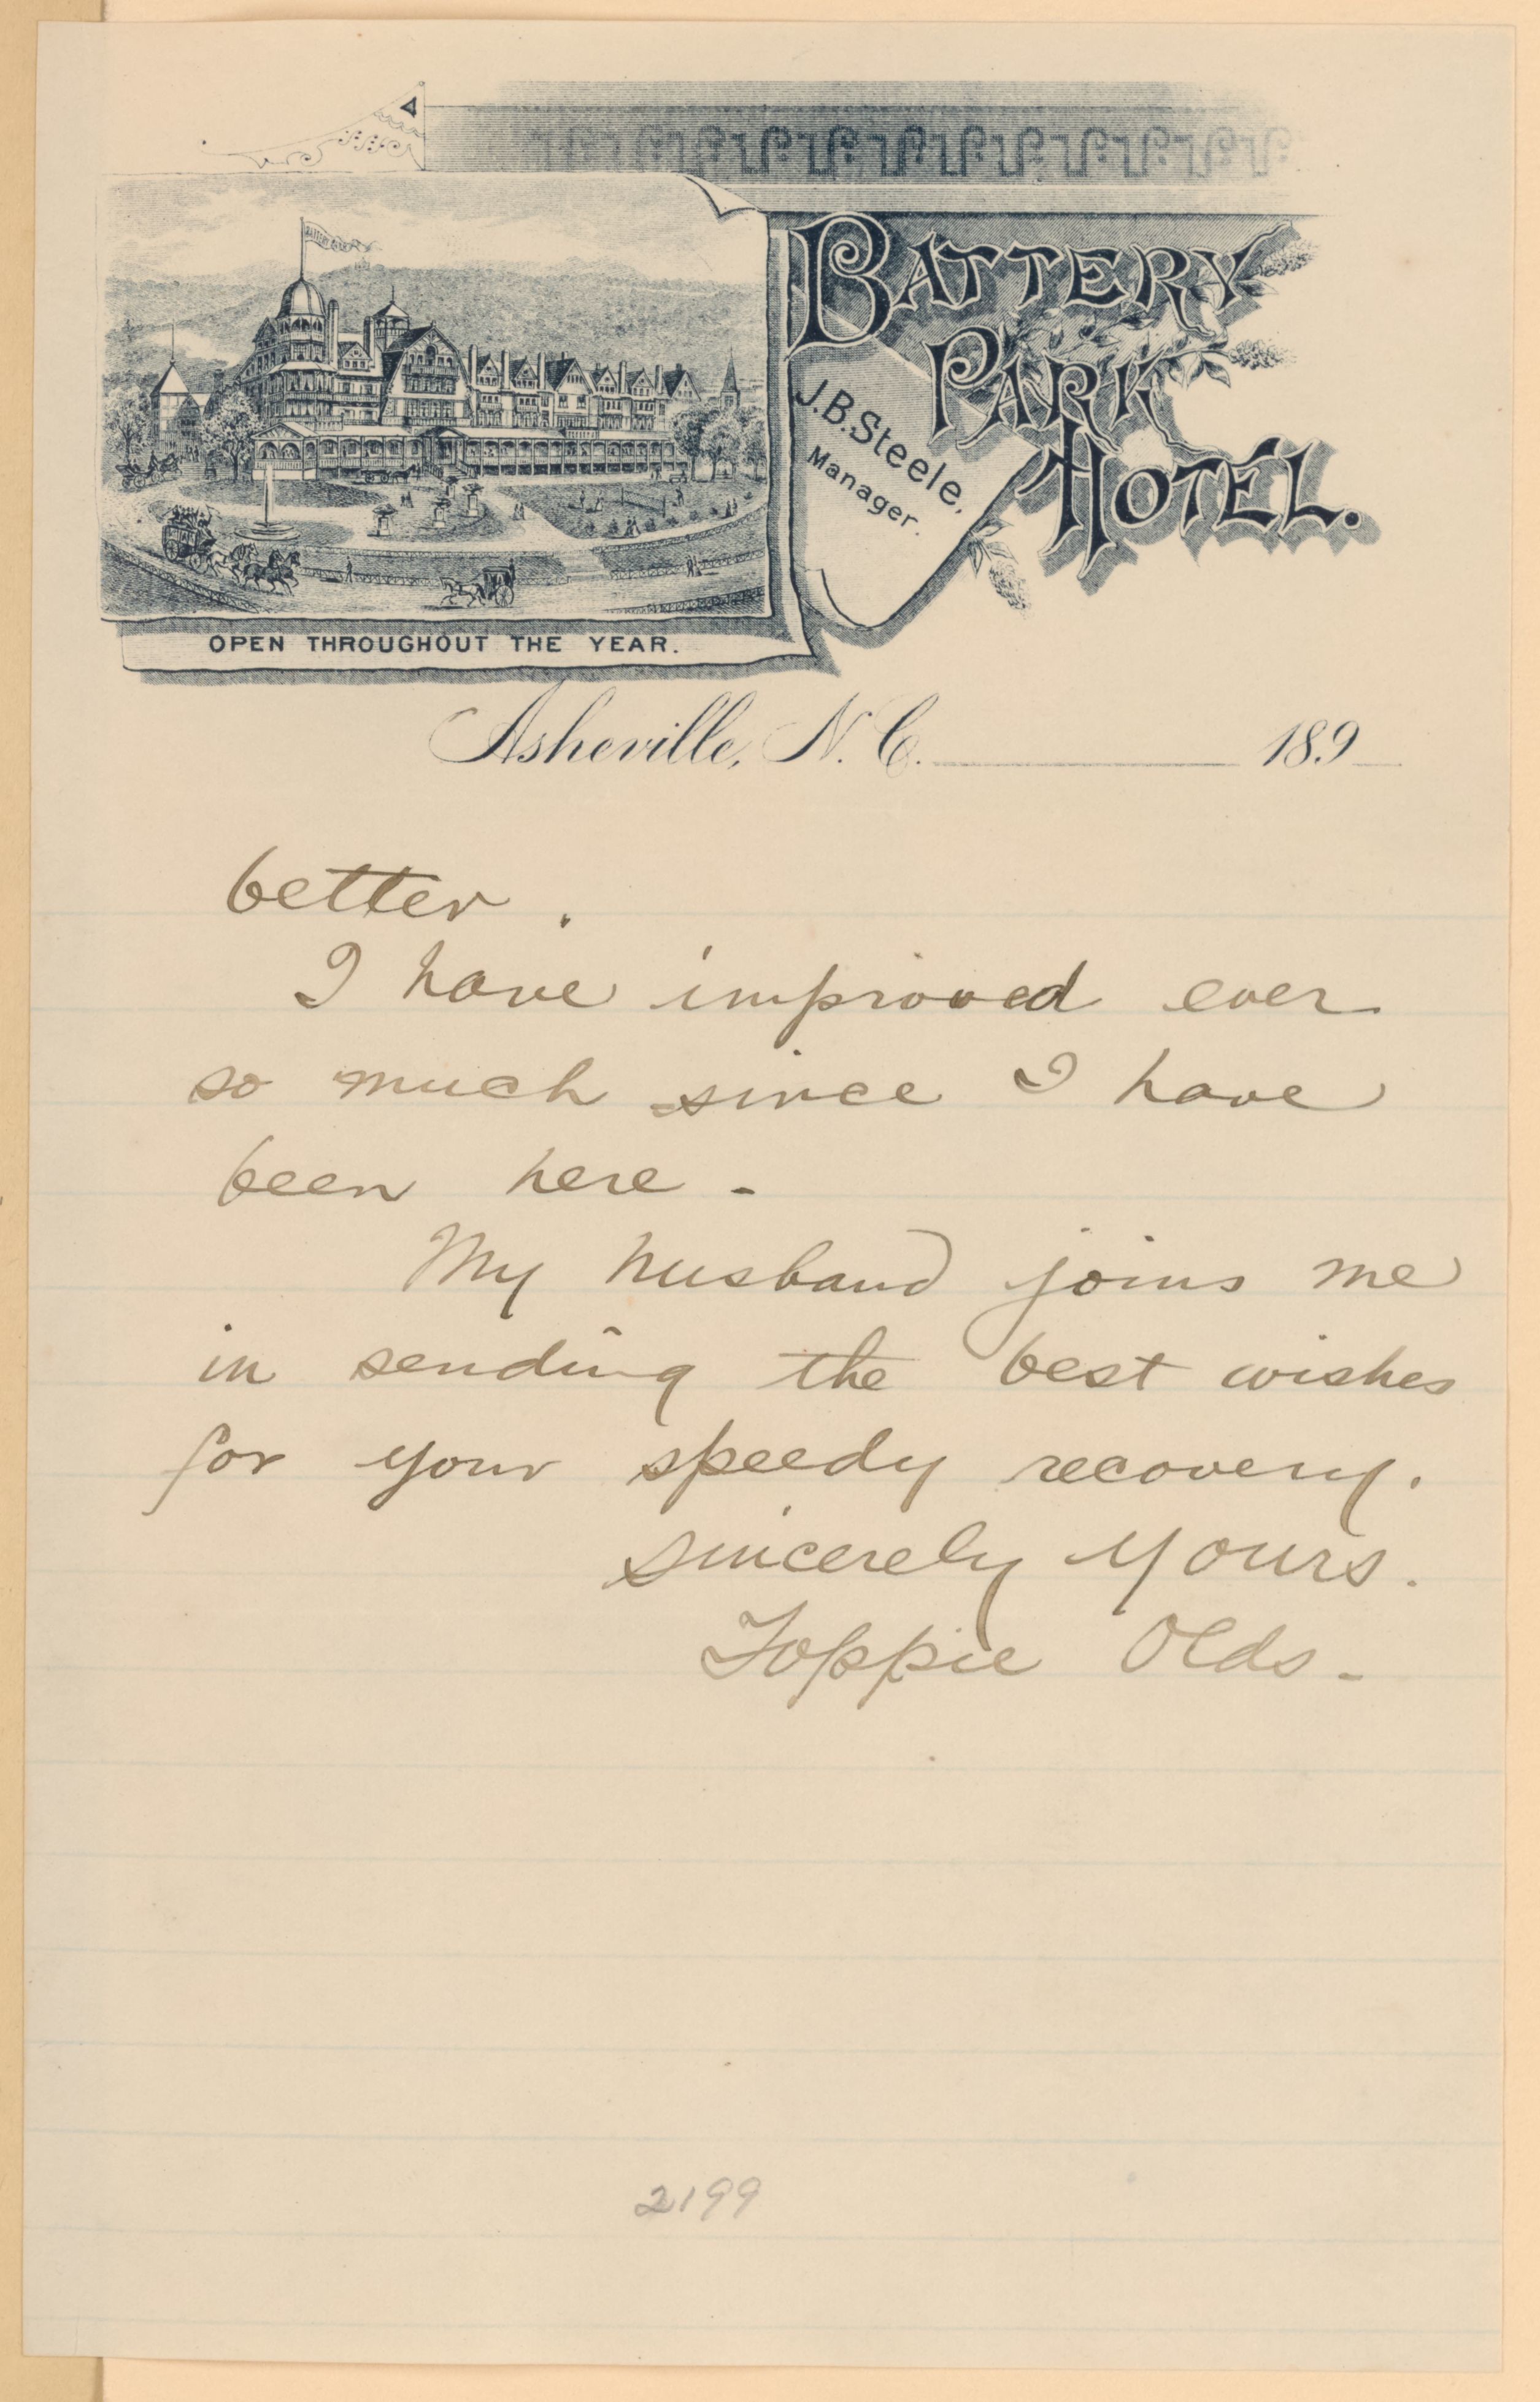 BATTERY PARK
BATTERY
PARK
HOTEL.
J.B. Steele,
Manager.
OPEN THROUGHOUT THE YEAR.
Asheville, N. C. 189
better.
I have improved ever
so much since I have
been here -
My husband joins me
in sending the best wishes
for your speedy recovery.
sincerely yours.
Toppie Olds -
2199